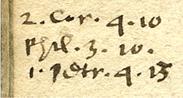 2. Cor. 4. 10
Phil. 3. 10.
1. Petr. 4. 13